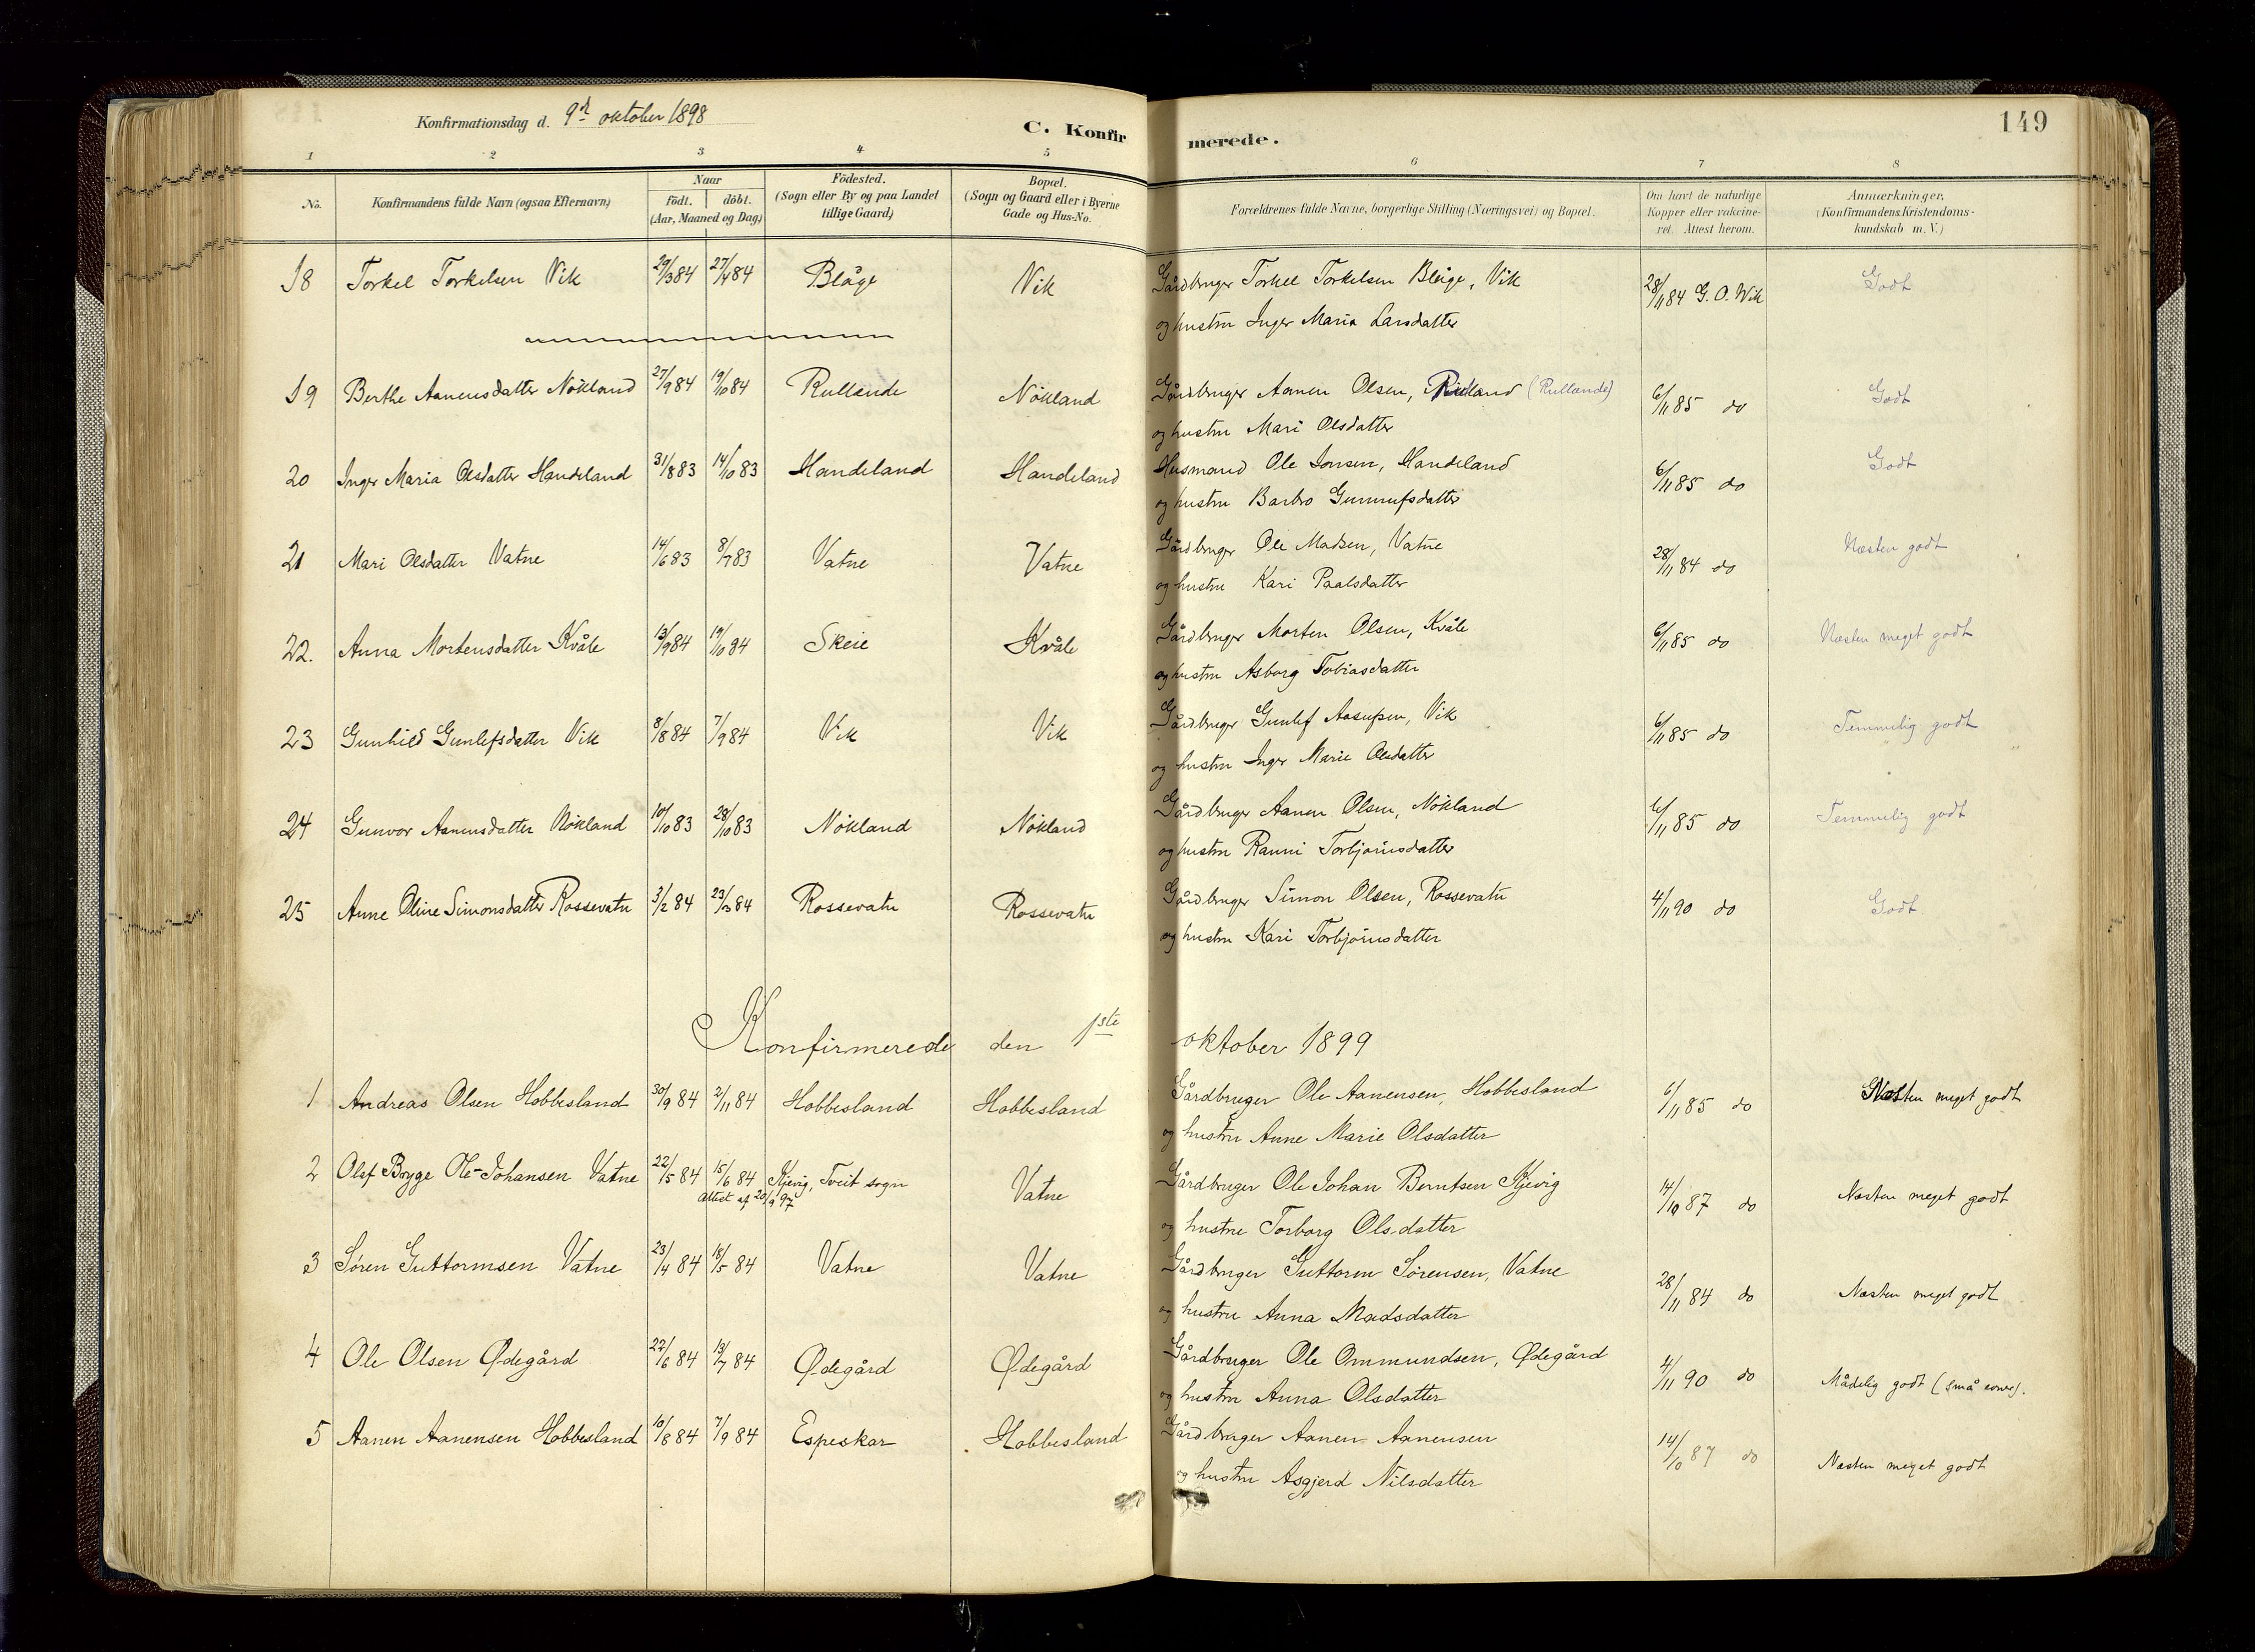 149
Konfirmationsdag d. 9d oktober 1898
C. Konfirmerede.
1 2 3 4 5 6 7 8
No. Konfirmandens fulde Navn (ogsaa Efternavn) Naar født. døbt. (Aar, Maaned og Dag) Födested. (Sogn eller By og paa Landet tillige Gaard) Bopæl. (Sogn og Gaard eller i Byerne Gade og Hus-No. Forældrenes fulde Navne, borgerlige Stilling (Næringsvei) og Bopæl. Om havt de naturlige Kopper eller vakcineret. Attest herom. Anmærkninger, (Konfirmandens Kristendomskundskab m. V.)
18 Torkel Torkelsen Vik 29/3 84 27/4 84 Blåge Vik Gårdbruger Torkel Torkelsen Blåge, Vik 28/11 84 G. O. Wik Godt
og hustru Inger Maria Larsdatter
19 Berthe Aanensdatter Nökland 27/9 84 19/10 84 Rullande Nökland Gårdbruger Aanen Olsen, (Rullande) 6/11 85 do Godt
og hustru Mari Olsdatter
20 Inger Maria Olsdatter Handeland 31/8 83 14/10 83 Handeland Handeland Husmand Ole Jonsen, Handeland 6/11 85 do Godt
og hustru Barbro Gunnufsdatter
21 Mari Olsdatter Vatne 14/6 83 8/7 83 Vatne Vatne Gårdbruger Ole Madsen, Vatne 28/11 84 do Næsten godt
og hustru Kari Paalsdatter
22. Anna Mortensdatter Kvåle 13/9 84 19/10 84 Skeie Kvåle Gårdbruger Morten Olsen, Kvåle 6/11 85 do Næsten meget godt
og hustru Asborg Tobiasdatter
23 Gunhild Gunlefsdatter Vik 8/8 84 7/9 84 Vik Vik Gårdbruger Gunlef Aasufsen, Vik 6/11 85 do Temmelig godt
og hustru Inger Marie Olsdatter
24 Gunvor Aanensdatter Nökland 10/10 83 28/10 83 Nökland Nökland Gårdbruger Aanen Olsen, Nökland 6/11 85 do Temmelig godt
og hustru Ranni Torbjörnsdatter
25 Anne Oline Simonsdatter Rossevatn 3/2 84 23/3 84 Rossevatn Rossevatn Gårdbruger Simon Olsen, Rossevatn 4/11 90 do Godt
og hustru Kari Torbjörnsdatter
Konfirmerede den 1ste oktober 1899
1 Andreas Olsen Hobbesland 30/9 84 2/11 84 Hobbesland Hobbesland Gårdbruger Ole Aanensen, Hobbesland 6/11 85 do Næsten meget godt
og hustru Anne Marie Olsdatter
2 Olaf Bryge Ole-Johansen Vatne 22/5 84 15/6 84 Kjevig, Tveit sogn Vatne Gårdbruger Ole Johan Berntsen Kjevig 14/10 87 do Næsten meget godt
Attest af 20/9 97
og hustru Torborg Olsdatter
3 Søren Guttormsen Vatne 23/4 84 18/5 84 Vatne Vatne Gårdbruger Guttorm Sørensen, Vatne 28/11 84 do Næsten meget godt
og hustru Anna Madsdatter
4 Ole Olsen Ødegård 22/6 84 13/7 84 Ødegård Ødegård Gårdbruger Ole Ommundsen, Ødegård 4/11 90 do Mådelig godt (små evner).
og hustru Anna Olsdatter
5 Aanen Aanensen Hobbesland 10/8 84 7/9 84 Espeskar Hobbesland Gårdbruger Aanen Aanensen 14/10 87 do Næsten meget godt
og hustru Asgjerd Nilsdatter